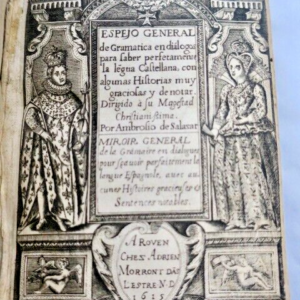 ESPEJO GENERAL
de Gramatica en dialogos
para saber perfetamente
la légua Castellana, con
algunas Historias muy
graciosas y de notar.
Dirigido à su Magestad
Christianissima.
Por Ambrosio de Salazar
MIROIR GENERAL
de la Grammaire en dialogues
pour sçavoir parfaitement la
langue Espagnole, avec au
cunes Histoires gracieuses &
Sentences notables.
A ROVEN
CHEZ ADRIEN
MORRONT DAS
LESTRE ND
1615